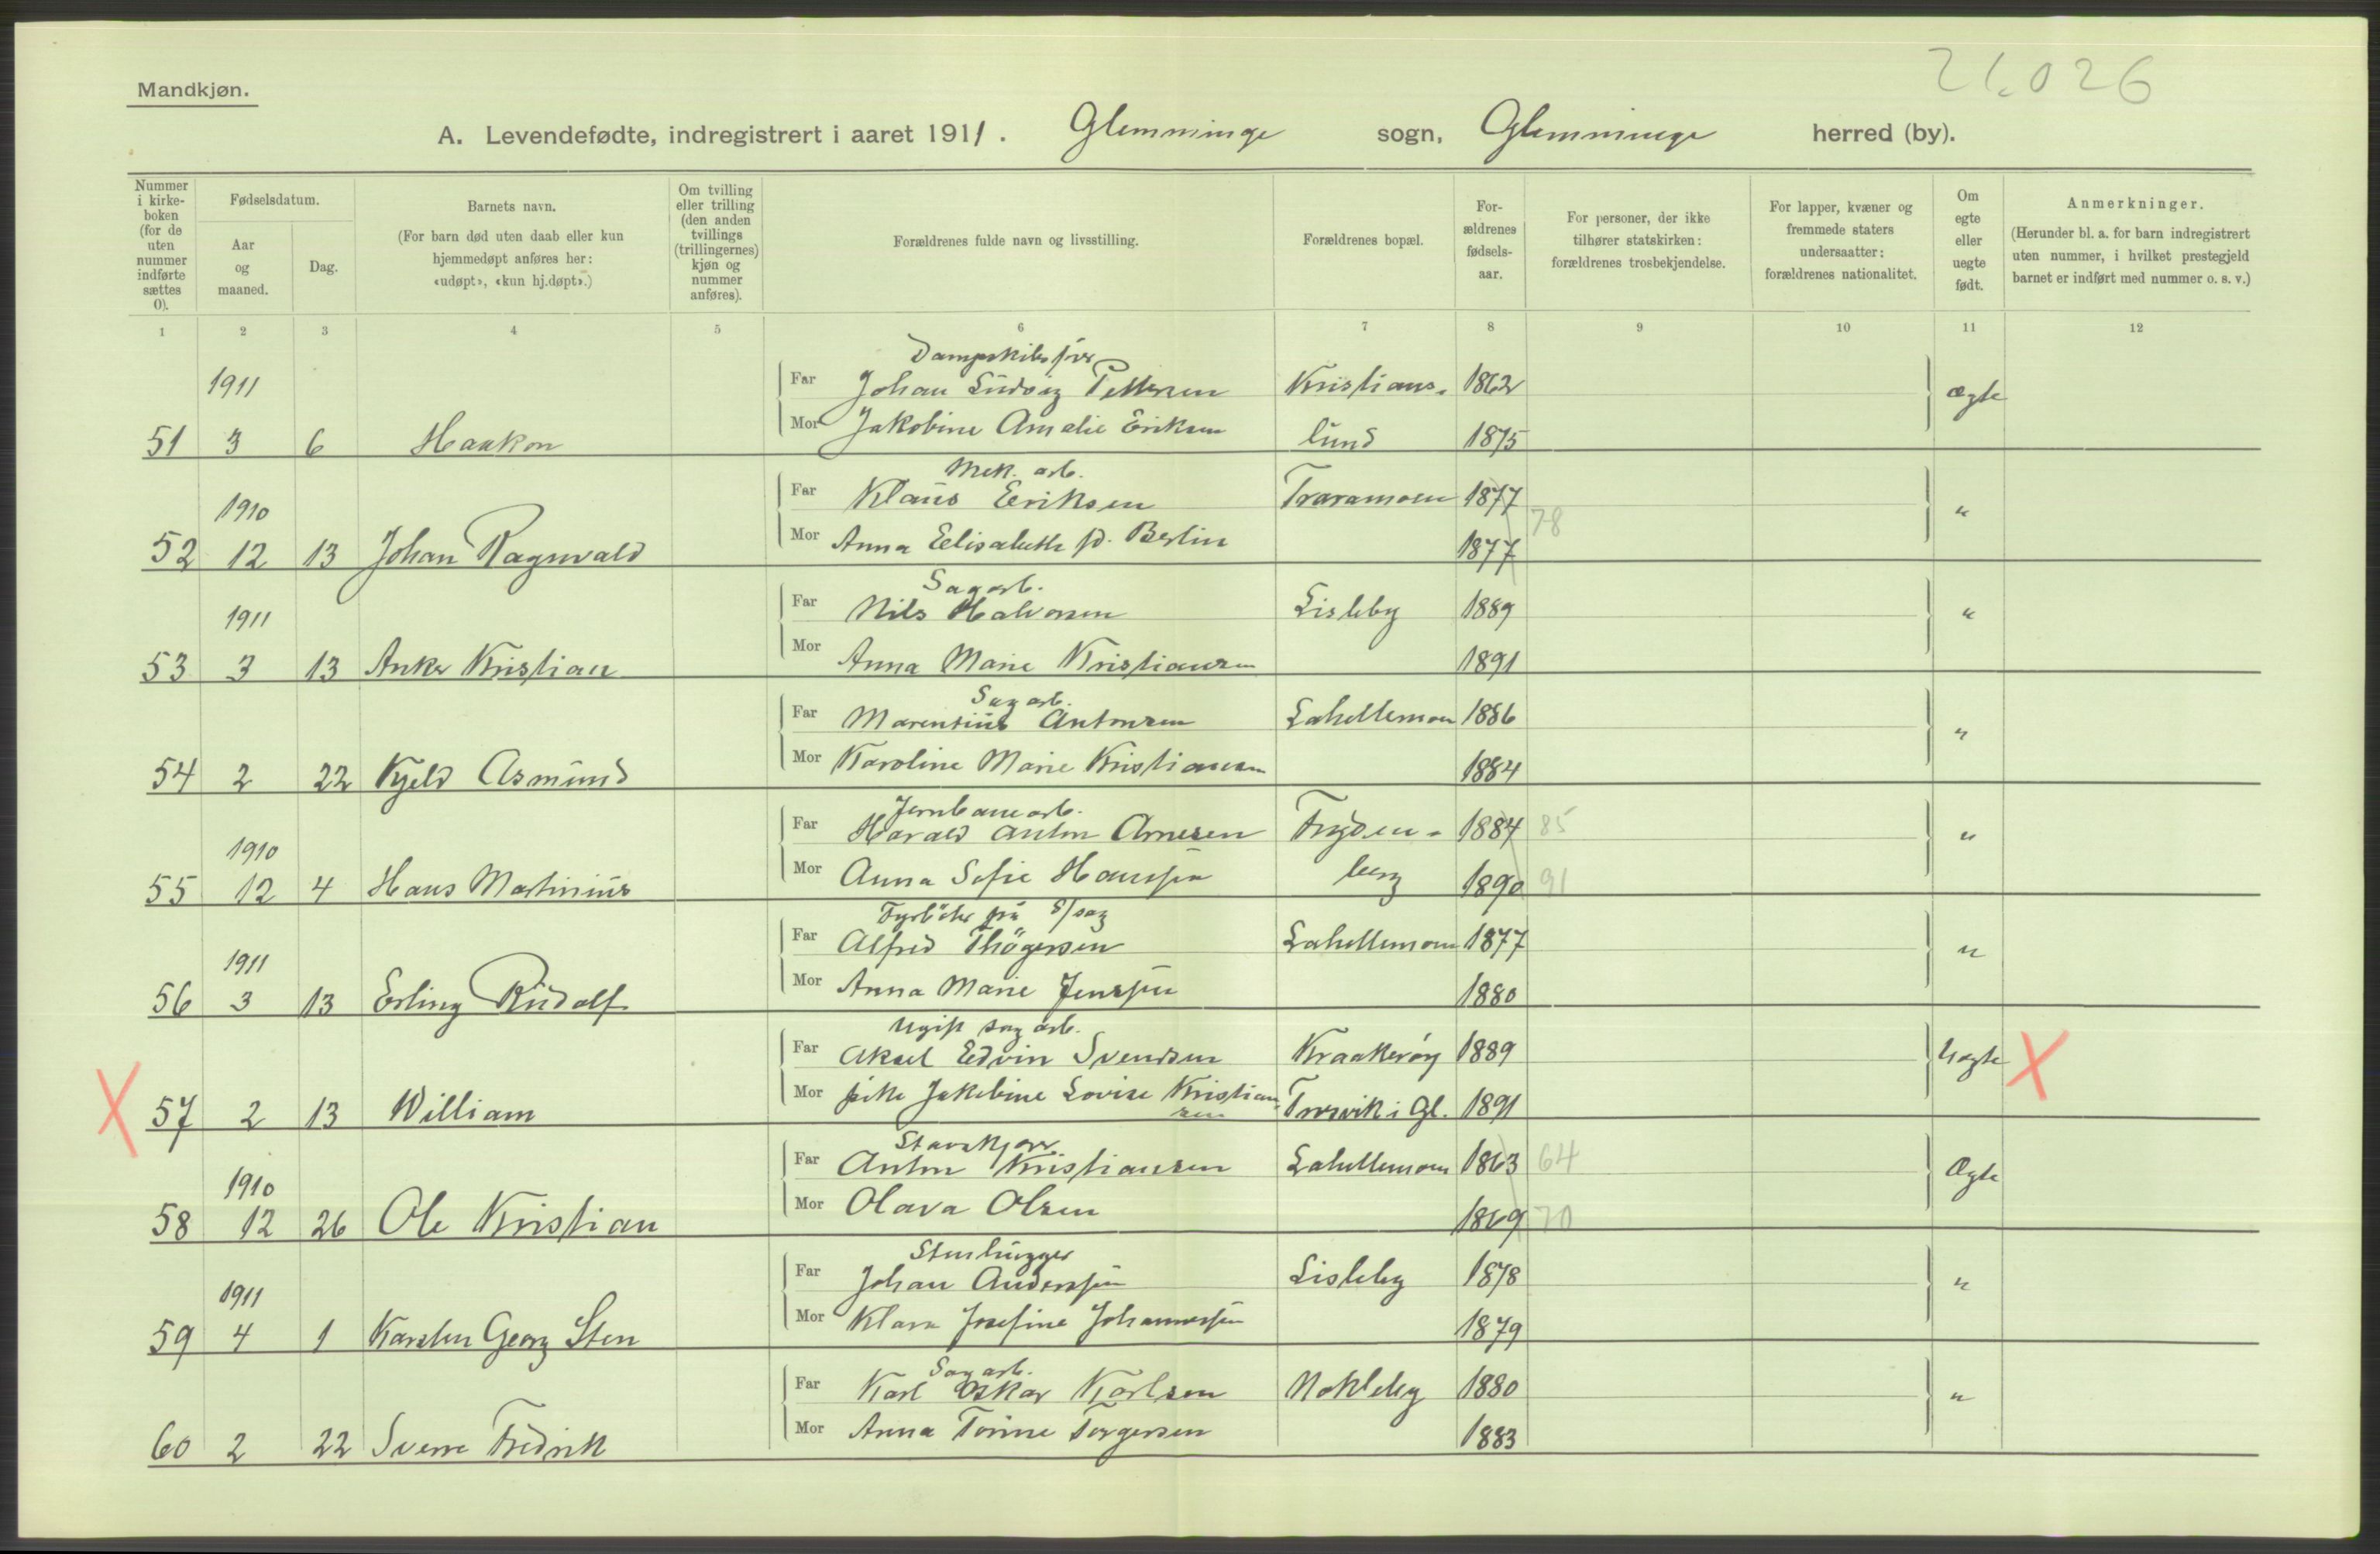 21.026
Mandkjøn.
A. Levendefødte, indregistrert i aaret 1911. Glemminge sogn, Glemminge herred (by).
Nummer i kirke-boken (for de uten nummer indførte sættes 0).
Fødselsdatum.
Aar og maaned.
Dag.
Barnets navn.
(For barn død uten daab eller kun hjemmedøpt anføres her: «udøpt», «kun hj.døpt».)
Om tvilling eller trilling (den anden tvillings (trillingernes) kjøn og nummer anføres).
Forældrenes fulde navn og livsstilling.
Forældrenes bopæl.
For-ældrenes fødsels-aar.
For personer, der ikke tilhører statskirken: forældrenes trosbekjendelse.
For lapper, kvæner og fremmede staters undersaatter: forældrenes nationalitet.
Om egte eller uegte født.
Anmerkninger.
(Herunder bl. a. for barn indregistrert uten nummer, i hvilket prestegjeld barnet er indført med nummer o. s. v.)
1 2 3 4 5 6 7 8 9 10 11 12
Dampskibsfører
1911 Far Johan Ludvig Pettersen Kristians- 1862 Ægte
51 3 6 Haakon Mor Jakobine Amalie Eriksen lund 1875
Mek. arb.
1910 Far Klaus Eriksen Traramoen 1877 "
78
52 12 13 Johan Ragnvald Mor Anna Elisabeth f. Berlin 1877
Sagarb.
1911 Far Nils Halvorsen Lisleby 1889 "
53 3 13 Anker Kristian Mor Anna Marie Kristiansen 1891
Sagarb.
Far Marentius Antonsen Lahellemoen 1886 "
54 2 22 Kjeld Asmund Mor Karoline Marie Kristiansen 1884
Jernbanearb.
1910 Far Harald Anton Arnesen Fryden- 1884 85 "
55 12 4 Hans Martinius Mor Anna Sofie Hanssen berg 1890 91
Fyrbøter på S/sag
1911 Far Alfred Thøgersen Lahellemoen 1877 "
56 3 13 Erling Rudolf Mor Anna Marie Jenssen 1880
Ugift sag arb.
Far Aksel Edvin Svendsen Kraakerøy 1889 Uegte X
X 57 2 13 William Mor pike Jakobine Lovise Kristiansen Trosvik i Gl. 1891
Far Anton Kristiansen Lahellemoen 1863 64 Ægte
1910
58 12 26 Ole Kristian Mor Olava Olsen 1869 70
Stenhugger
1911 Far Johan Anderssen Lisleby 1878 "
59 4 1 Karsten Georg Sten Mor Klara Josefine Johannessen 1879
Sagarb.
Far Karl Oskar Karlsen Nokleby 1880 "
60 2 22 Sverre Fredrik Mor Anna Torine Torgersen 1883